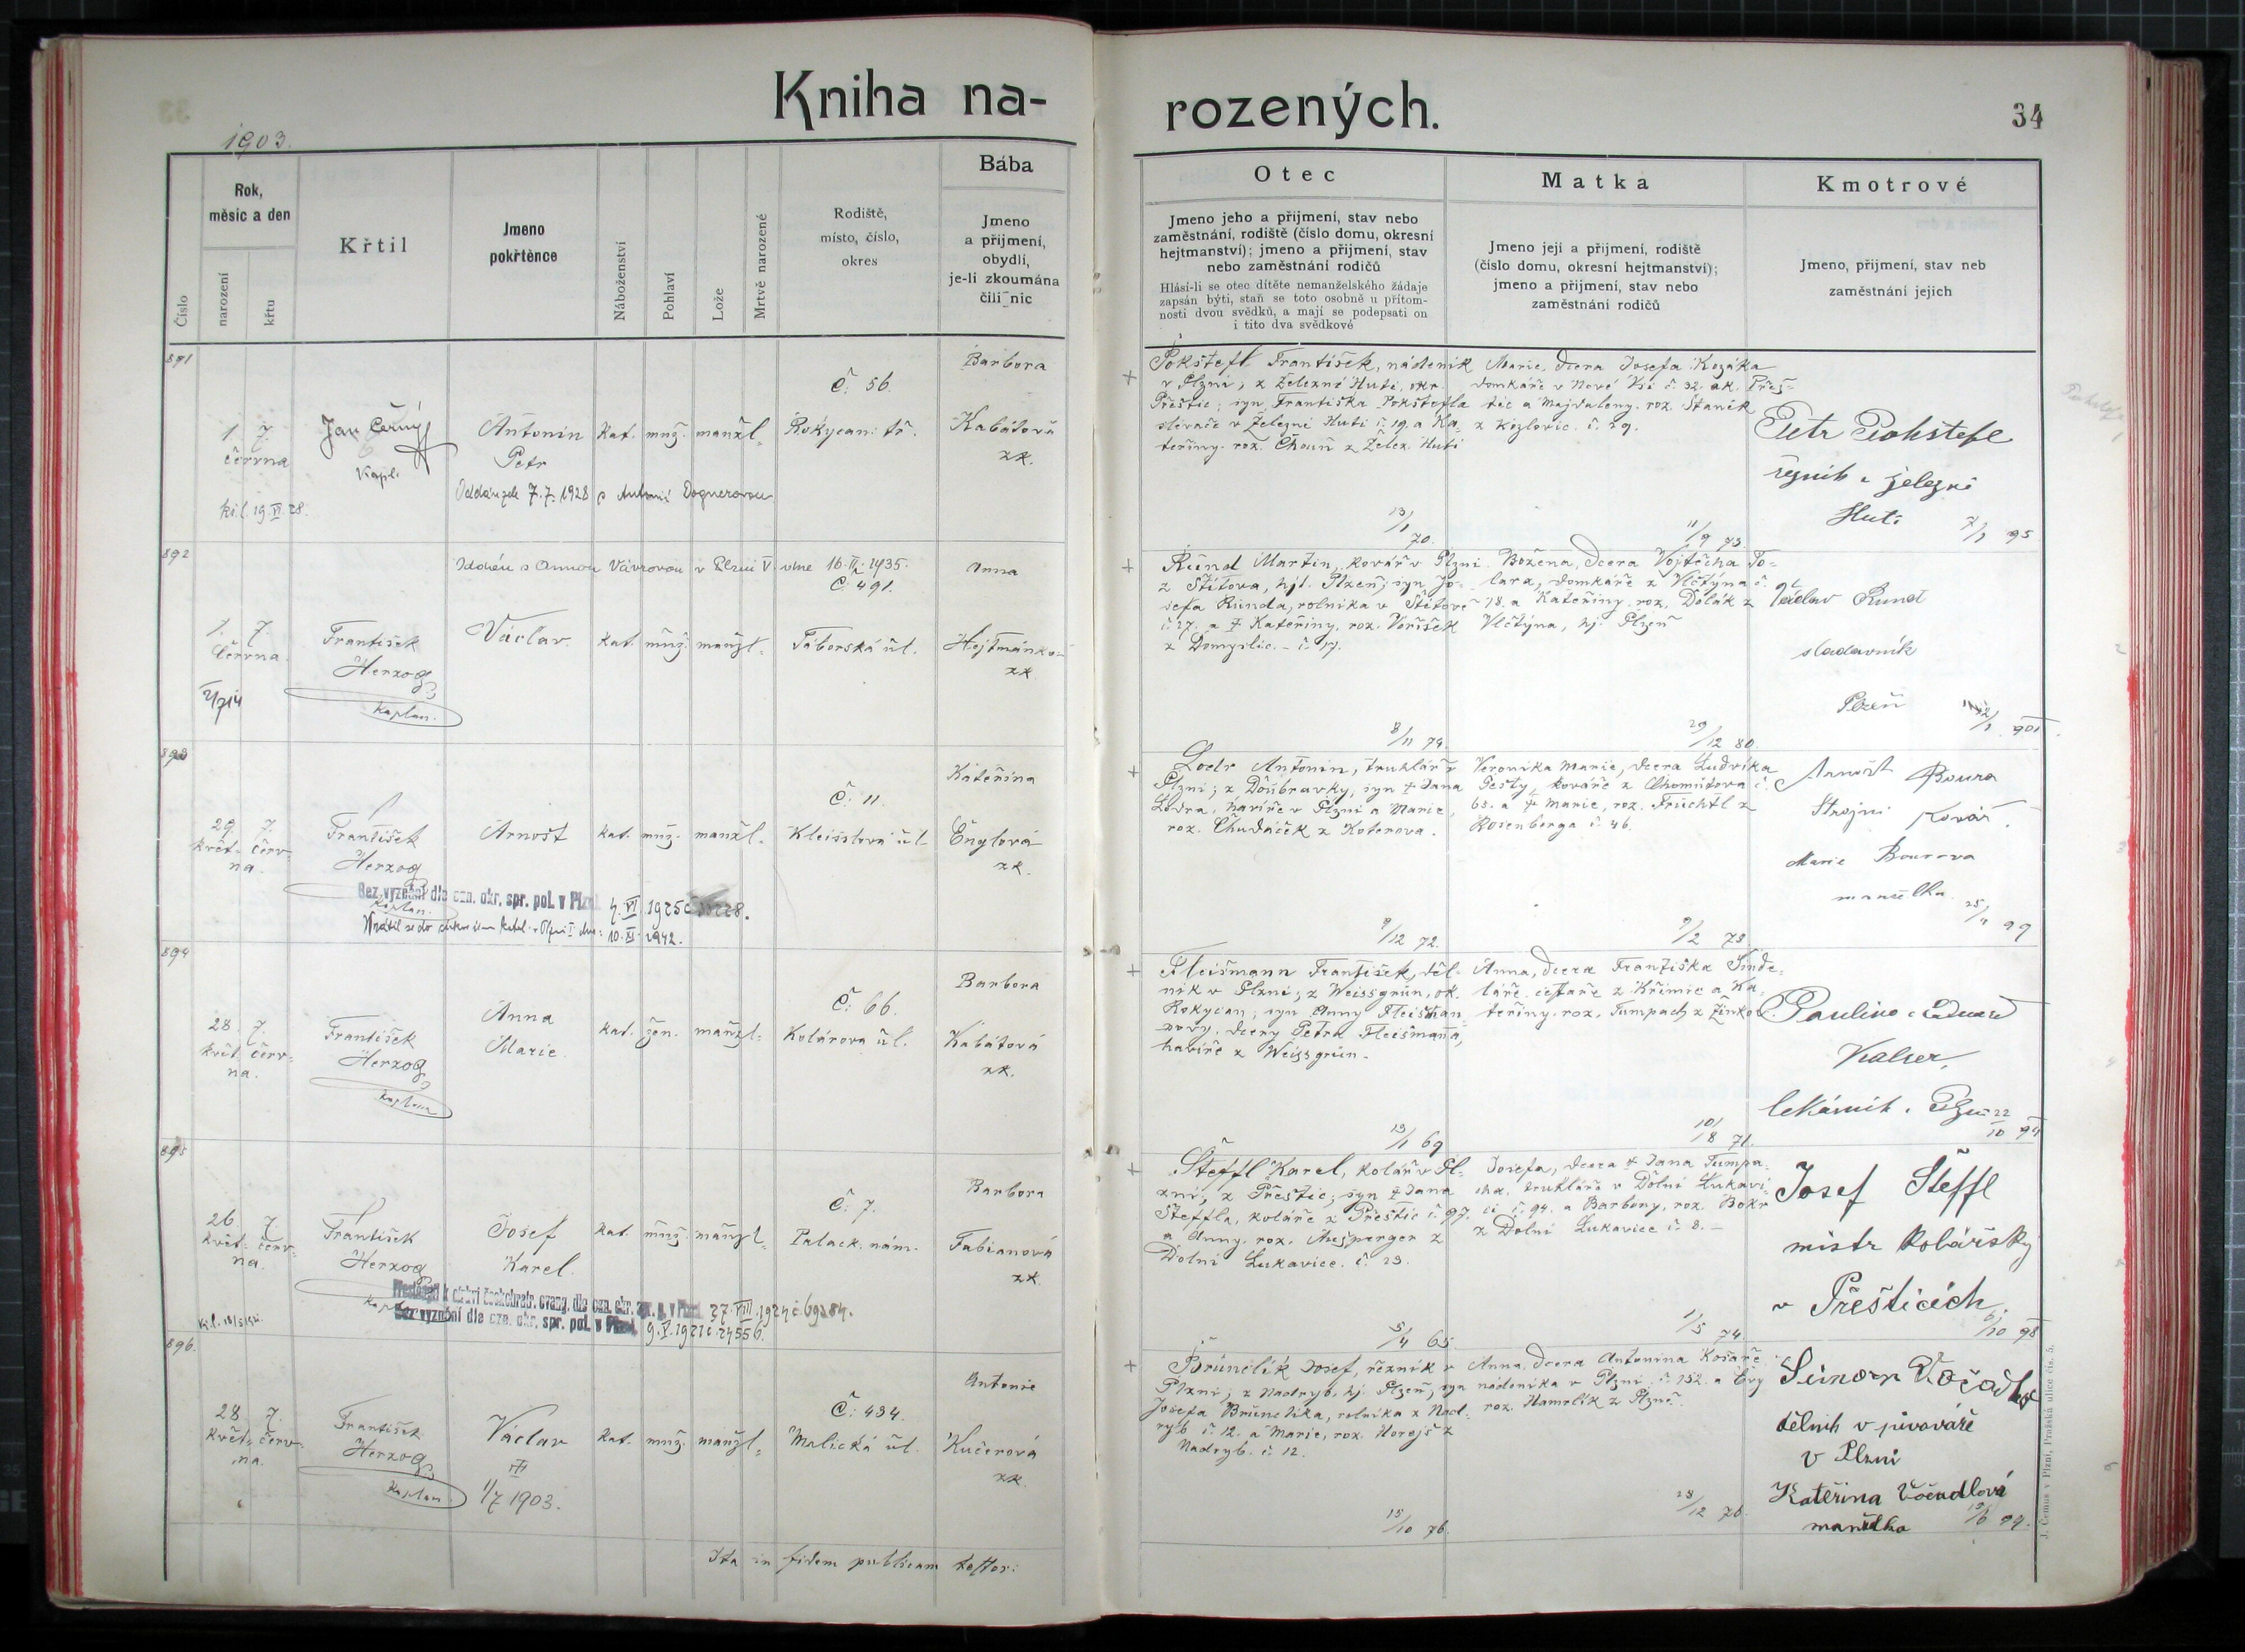 Kniha na-
rozených.
34
1903.
Číslo
Rok,
měsíc a den
narození
křtu
Křtil
Jmeno
pokřtěnce
Náboženství
Pohlaví
Lože
Mrtvě narozené
Rodiště,
místo, číslo,
okres
Bába
Jmeno
a přijmení,
obydlí,
je-li zkoumána
čili nic
Otec
Jmeno jeho a přijmení, stav nebo
zaměstnání, rodiště (číslo domu, okresní
hejtmanství); jmeno a přijmení, stav
nebo zaměstnání rodičů
Hlásí-li se otec dítěte nemanželského žádaje
zapsán býti, staň se toto osobně u přítom-
nosti dvou svědků, a mají se podepsati on
i tito dva svědkové
Matka
Jmeno její a přijmení, rodiště
(číslo domu, okresní hejtmanství);
jmeno a přijmení, stav nebo
zaměstnání rodičů
Kmotrové
Jmeno, přijmení, stav neb
zaměstnání jejich
891
1. 7.
června
Jan Černý
kapl.
Antonín
Petr
kat. muž. manžl.
Č. 56.
Rokycan. tř.
Barbora
Kabátová
zk.
Oddán zde 7.7.1928 s Antonií Wagnerovou
19.VI.28.
Pokštefl František, nádeník
v Plzni, z Železné Huti, okr.
Přeštic; syn Františka Pokštefla
slévače v Železné Huti č. 19. a Ka-
teřiny. roz. Choun z Želez. Huti
13/1 70.
Marie, dcera Josefa Kozáka
domkáře v Nové Vsi č. 32. ok. Přeš-
tic a Majdaleny. roz. Staněk
z Kozlovic. č. 29.
11/9 73.
Petr Pokštefl
řezník z železné
Huti
95
892
Oddán s Annou Vávrovou v Plzni V. dne 16.II.1935.
1. 7.
června
František
Herzog
kaplan.
Václav
kat. muž. manžl.
Č. 491.
Táborská ul.
Anna
Hejtmánko-
zk.
Rund Martin, kovář v Plzni
z Štítova, hjt. Plzeň; syn Jo-
sefa Runda, rolníka v Štítově
č. 17. a † Kateřiny, roz. Voříšek
z Domyslic. – č. 17.
8/11 74.
Božena, dcera Vojtěcha To-
lara, domkáře z Vlčtýna č.
78. a Kateřiny. roz. Dolák z
Vlčtýna, hj. Plzeň
29/12 80.
Václav Rund
sladovník
Plzeň
901
893
29. 7.
květ- červ-
na.
František
Herzog
kaplan.
Arnošt
kat. muž. manžl.
Č. 11.
Kleisslova ul.
Kateřina
Englová
zk.
Bez vyznání dle ozn. okr. spr. pol. v Plzni
4. VI. 1925
10. XI. 1942.
Lodr Antonín, truhlář v
Plzni; z Doubravky, syn † Jana
Lodra, havíře v Plzni a Marie,
roz. Chudáček z Koterova.
9/12 72.
Veronika Marie, dcera Ludvíka
Pešty, kováře z Chomútova č.
63. a † Marie, roz. Früchtl z
Rosenberga č. 46.
9/2 73
Arnošt Boura
Strojní kovář.
Marie Bourova
manželka
25/4 99
894
28. 7.
květ. červ-
na.
František
Herzog
kaplan
Anna
Marie
kat. žen. manžl.
Č. 66.
Kolárova ul.
Barbora
Kabátová
zk.
Fleišmann František, děl-
ník v Plzni; z Weissgrün, ok.
Rokycan; syn Anny Fleišman-
novy, dcery Petra Fleišmana,
havíře z Weissgrün.
13/1 69
Anna, dcera Františka Šinde-
láře, cestaře z Křimic a Ka-
teřiny. roz. Tumpach z Žinkov
10/8 71.
Paulina a Eduard
Kalser,
lékárník v Plzni
22/10 94
895
26. 7.
květ- červ-
na.
František
Herzog
Josef
Karel.
kat. muž. manžl.
Č. 7.
Palack. nám.
Barbora
Fabianová
zk.
27. VIII. 1924
Bez vyznání dle ozn. okr. spr. pol. v Plzni
9. V. 1921
Šteffl Karel, kolář v Pl-
zni, z Přeštic; syn † Jana
Šteffla, koláře z Přeštic č. 97.
a Anny. roz. Ausperger z
Dolní Lukavice. č. 23.
5/4 65.
Josefa, dcera † Jana Tumpa-
cha, truhláře v Dolní Lukavi-
ci č. 94. a Barbory, roz. Bokr
z Dolní Lukavice č. 8. –
1/5 74.
Josef Šteffl
mistr kolářský
v Přešticích.
6/10 98
896.
28. 7.
květ- červ-
na.
František
Herzog
kaplan
Václav
1/7 1903.
kat. muž. manžl.
Č. 434.
Malická ul.
Antonie
Kučerová
zk.
Brunclík Josef, řezník v
Plzni; z Nadryb, hj. Plzeň, syn
Josefa Brunclíka, rolníka z Nad-
ryb č. 12. a Marie, roz. Horejš z
Nadryb. č. 12.
15/10 76.
Anna, dcera Antonína Košaře
nádeníka v Plzni č. 152. a Evy
roz. Hamrlík z Plzně.
28/12 76.
Šimon Vočadlo
dělník v pivováře
v Plzni
Kateřina Vočadlová
manželka
Ita in fidem publicam testor:
J. Čemus v Plzni, Pražská ulice čís. 5.